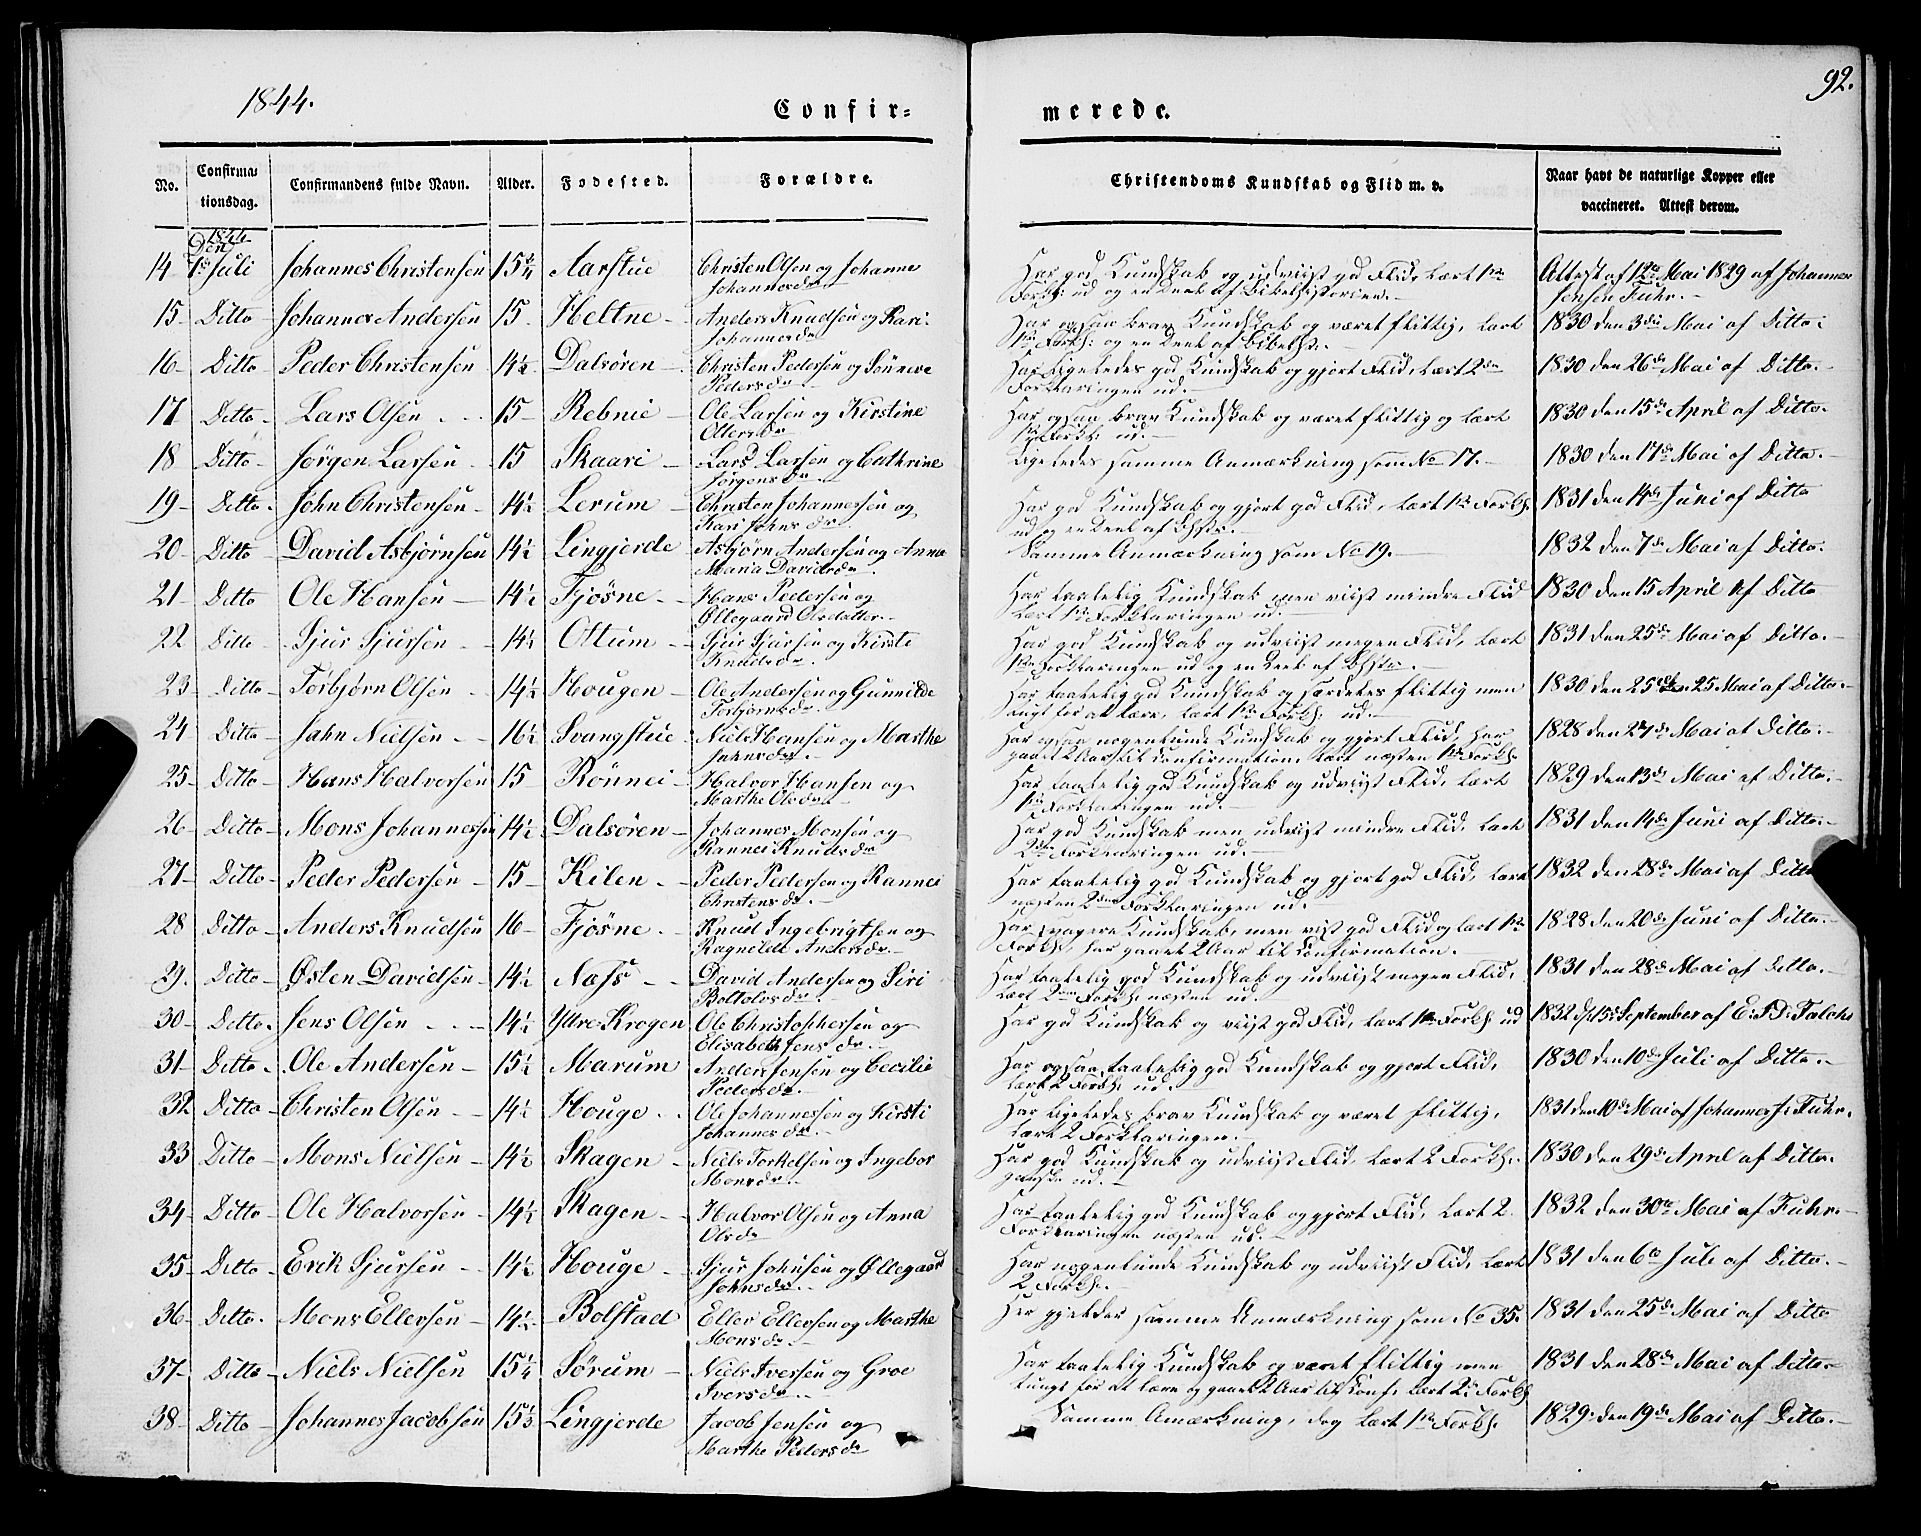 1844.
Confir=
merede.
92.
No.
Confirmationsdag.
Confirmandens fulde Navn.
Alder.
Fodested.
Forældre.
Christendoms Kundskab og Flid m. v.
Naar havt de naturlige Kopper eller
vaccineret. Attest derom.
1844
Den
14 1ste Juli Johannes Christensen 15 3/4 Aarstue Christen Olsen og Johanne Har god Kundskab og udviist god Flid, lært 1ste Attest af 12te Mai 1829 af Johannes
Johannesdr Forkl: ud og en Deel af Bibelhistorien.- Jensen Fuhr.-
15- Ditto- Johannes Andersen 15- Heltne- Anders Knudsen og Kari Har ogsaa brav Kundskab og været flittig, lært 1830 den 3die Mai af Ditto.
Johannesdr 1ste Forkl: og en Deel af Bibelhst.-
16- Ditto- Peder Christensen 14 1/2 Dalsören- Christen Pedersen og Sönneve Har ligeledes god Kundskab og gjort Flid, lært 2den 1830 den 26de Mai af Ditto.-
Pedersdr Forklaringen ud.-
17 Ditto- Lars Olsen - 15- Rebnie- Ole Larsen og Kirstine Har ogsaa brav Kundskab og været flittig og lært 1830 den 15de April af Ditto.
Ollersdr 1ste Forkl: ud.-
18 Ditto- Jörgen Larsen- 15 Skaari- Lars Larsen og Cathrine Ligeledes samme Anmærkning som No 17.- 1830 den 17de Mai af Ditto.-
Jörgensdr.
19- Ditto- John Christensen- 14 1/2 Lerum- Christen Johannessen og Har god Kundskab og gjort god Flid, lært 1ste Forkl: 1831 den 14de Juni af Ditto
Kari Johnsdr. ud og en Deel af Bhstr.-
20- Ditto- David Asbjørnsen 14 1/2 Lingjerde Asbjørn Andersen og Anna Samme Anmærkning som No 19.- 1832 den 7de Mai af Ditto.
Maria Davidsdr.
21- Ditto Ole Hansen- 14 1/2 Fjøsne- Hans Pedersen og Har taalelig Kundskab men viist mindre Flid 1830 den 15 April af Ditto
Øllegaard Olsdatter- lært 1ste Forklaringen ud.-
22 Ditto- Sjur Sjursen- 14 1/2 Ottum- Sjur Sjursen og Kirsti Har god Kundskab og udviist megen Flid, lært 1831 den 25de Mai af Ditto.-
Knudsdr. 1ste Forklaringen ud og en Deel af Bhstr.-
23- Ditto- Torbjørn Olsen- 14 1/2 Hougen- Ole Andersen og Gunnilde Har taalelig god Kundskab og særdeles flittig men 1830 den 25 Mai af Ditto.-
Torbjørnsdr. tungt for at lære, lært 1ste Forkl: ud.-
24 Ditto- John Nielsen- 16 1/2 Svangstue- Niels Hansen og Marthe Har ogsaa nogenlunde Kundskab og gjort Flid, har 1828 den 27de Mai af Ditto.-
Johnsdr.- gaaet 2 Aar til Confirmation, lært næsten 1ste Forkl:
25- Ditto- Hans Halvorsen 15- Rönnei- Halvor Hansen og Har taalelig god Kundskab og udviist Flid, lært 1829 den 13de Mai af Ditto.-
Marthe Olsdr- 1ste Forklaringen ud.-
26- Ditto- Mons Johannessen 14 1/2 Dalsören- Johannes Monsen og Har god Kundskab men udviist mindre Flid, lært 1831 den 14de Juni af Ditto.-
Rannei Knudsdr 2den Forklaringen ud.-
27- Ditto- Peder Pedersen- 15- Kilen- Peder Pedersen og Rannei Har taalelig god Kundskab og gjort god Flid, lært 1832 den 28de Mai af Ditto
Christensdr.- næsten 2den Forklaringen ud.-
28 Ditto- Anders Knudsen 16- Fjøsne- Knud Ingebrigtsen og Har svagere Kundskab, men viist god Flid og lært 1ste 1828 den 20de Juni af Ditto.-
Ragnilde Andersdr- Forkl:, har gaaet 2 Aar til Confirmation.-
29. Ditto- Østen Davidsen- 14 1/2 Næss- David Andersen og Siri Har taalelig god Kundskab og udviist megen Flid, 1831 den 28de Mai af Ditto.-
Boltolvsdr- lært 2den Forkl: næsten ud.-
30- Ditto- Jens Olsen- 14 1/2 Yttre Krogen Ole Christophersen og Har god Kundskab og viist god Flid, lært 1ste Forkl: ud 1832 d. 15 September af E. P. Falch
Elisabeth Jensdr.-
31- Ditto- Ole Andersen- 15 1/2 Marum- Anders Jensen og Cecilie Har ogsaa taalelig god Kundskab og gjort Flid, 1830 den 10de Juli af Ditto.-
Pedersdr.- lært 2 Forkl: ud.-
32 Ditto- Christen Olsen- 14 1/2 Houge- Ole Johannessen og Kirsti Har ligeledes brav Kundskab og været flittig, 1831 den 10de Mai af Johannes J. Fuhr.
Johannesdr.- lært 2 Forklaringen.-
33 Ditto- Mons Nielsen- 14 1/2 Skagen- Niels Torkelsen og Ingebor Har god Kundskab og udviist Flid, lært 2 Forkl: 1830 den 29de April af Ditto.
Monsdr.- ganske ud.-
34- Ditto- Ole Halvorsen- 14 1/2 Skagen- Halvor Olsen og Anna Har taalelig god Kundskab og gjort Flid, lært 2 1832 den 30te Mai af Fuhr.-
Olsdr Forklaringen næsten ud.-
35- Ditto- Erik Sjursen- 14 1/2 Houge- Sjur Johnsen og Øllegaard Har nogenlunde Kundskab og udviist Flid, lært 1831 den 6te Juli af Ditto.-
Johnsdr.- 2 Forkl:-
36- Ditto- Mons Ellersen- 14 1/2 Bolstad Eller Ellersen og Marthe Her gjelder samme Anmærkning som No 35. 1831 den 25de Mai af Ditto
Monsdr.-
37- Ditto- Niels Nielsen 15 1/4 Sørum- Niels Iversen og Groe Har taalelig Kundskab og været flittig men 1831 den 28de Mai af Ditto.-
Iversdr.- tungt for at lære og gaaet 2 Aar til Conf: lært 2. Forkl:
38- Ditto- Johannes Jacobsen 15 1/3 Lingjerde Jacob Jensen og Samme Anmærkning, dog lært 1ste Forkl: 1829 den 19de Mai af Ditto.-
Marthe Pedersdr